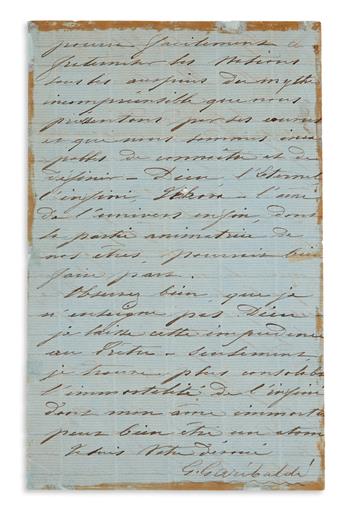 pourra facilement à
fraterniser les Nations
sous les auspices du mythe
incompréhensible que nous
présentons par ses œuvres
et que nous sommes inca
pables de connaître et de
définir — Dieu l'Eternel
l'infini, l'âme
de l'univers enfin, dont
la partie animatrice de
nos êtres, pourrait bien
faire part.
Observez bien, que je
n'enseigne pas Dieu
je laisse cette impudence
au Prêtre — seulement
je trouve plus consolable
l'immortalité de l'infini
dont mon âme immortelle
peut bien être un atome
Je suis Votre dévoué
G. Garibaldi